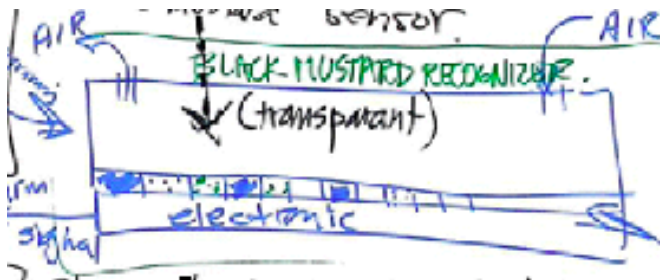 sensor.
AIR
AIR
BLACK MUSTARD RECOGNIZER.
(transparant)
electronic